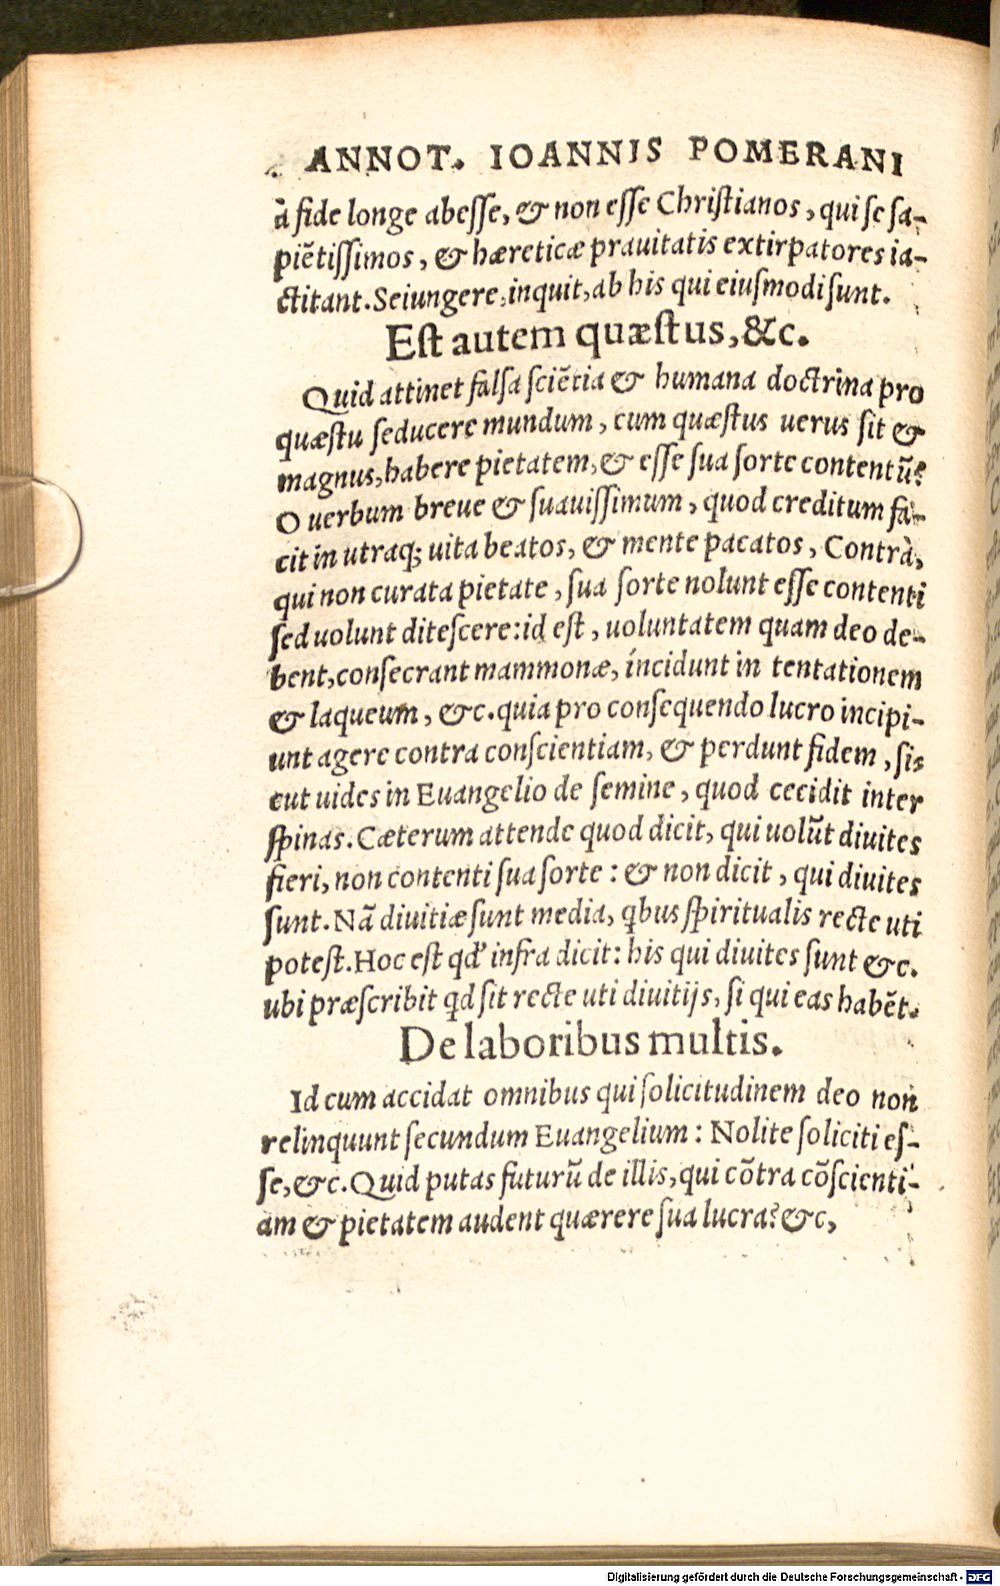 ANNOT. IOANNIS POMERANI
à fide longe abesse, & non esse Christianos, qui se sa-
piẽtissimos, & hæreticæ prauitatis extirpatores ia-
ctitant. Seiungere, inquit, ab his qui eiusmodi sunt.
Est autem quæstus, &c.
Quid attinet falsa sciẽtia & humana doctrina pro
quæstu seducere mundum, cum quæstus uerus sit &
magnus, habere pietatem, & esse sua sorte contentũ?
O uerbum breue & suauissimum, quod creditum fa-
cit in utraq; uita beatos, & mente pacatos, Contrà,
qui non curata pietate, sua sorte nolunt esse contenti
sed uolunt ditescere: id est, uoluntatem quam deo de-
bent, consecrant mammonæ, incidunt in tentationem
& laqueum, &c. quia pro consequendo lucro incipi-
unt agere contra conscientiam, & perdunt fidem, si-
cut uides in Euangelio de semine, quod cecidit inter
spinas. Cæterum attende quod dicit, qui uolũt diuites
fieri, non contenti sua sorte: & non dicit, qui diuites
sunt. Nã diuitiæ sunt media, qbus spiritualis recte uti
potest. Hoc est qd' infra dicit: his qui diuites sunt &c.
ubi præscribit qd sit recte uti diuitijs, si qui eas habẽt.
De laboribus multis.
Id cum accidat omnibus qui solicitudinem deo non
relinquunt secundum Euangelium: Nolite soliciti es-
se, &c. Quid putas futurũ de illis, qui cõtra cõscienti-
am & pietatem audent quærere sua lucra? &c,
Digitalisierung gefördert durch die Deutsche Forschungsgemeinschaft - DFG